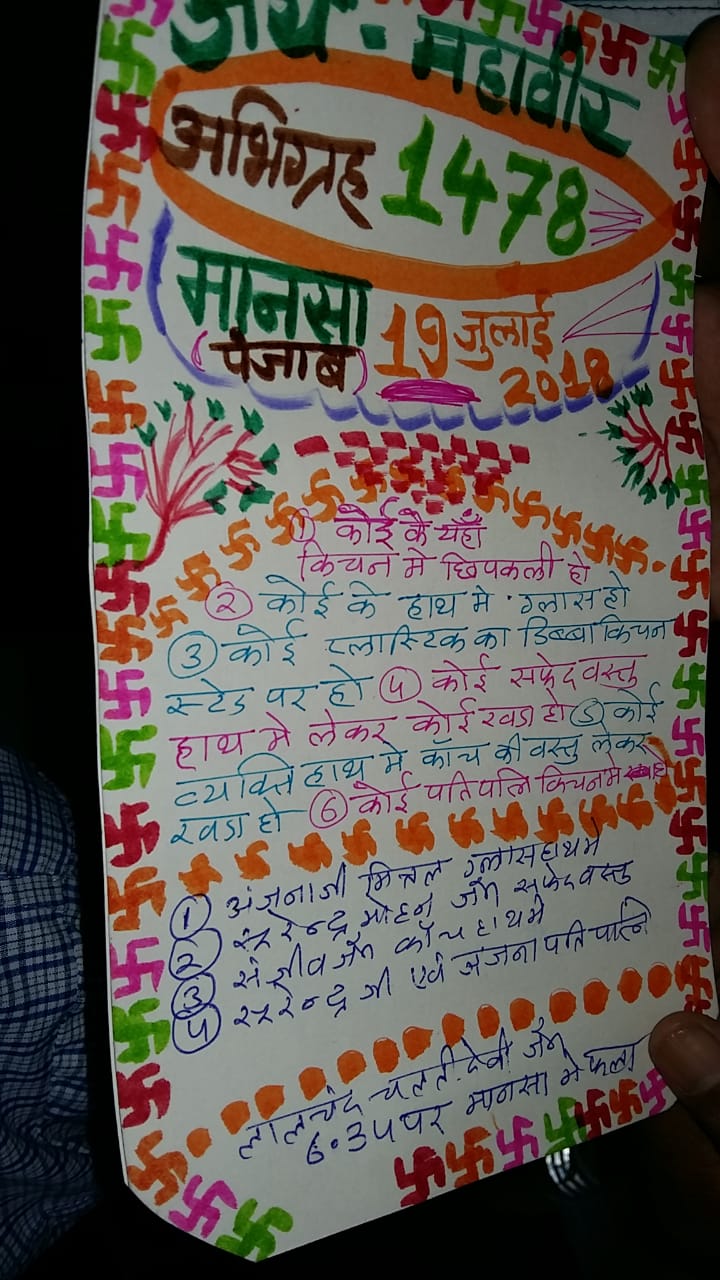 जय - महावीर
अभिग्रह 1478
मानसा
(पंजाब) 19 जुलाई
2018
① कोई के यहाँ
किचन मे छिपकली हो
② कोई के हाथ मे ग्लास हो
③ कोई प्लास्टिक का डिब्बा किचन
स्टेड पर हो ④ कोई सफेद वस्तु
हाथ मे लेकर कोई खडा हो ⑤ कोई
व्यक्ति हाथ मे काँच की वस्तु लेकर
खडा हो ⑥ कोई पति पत्नि किचन मे हो
① अंजनाजी मित्तल ग्लास हाथ मे
② सुरेन्द्र मोहन जैन सफेद वस्तु
③ संजीव जैन काँच हाथ मे
④ सुरेन्द्र जी एवं अंजना पति पत्नि
लालचंद चलती देवी जैन
6.34 पर मानसा मे फला